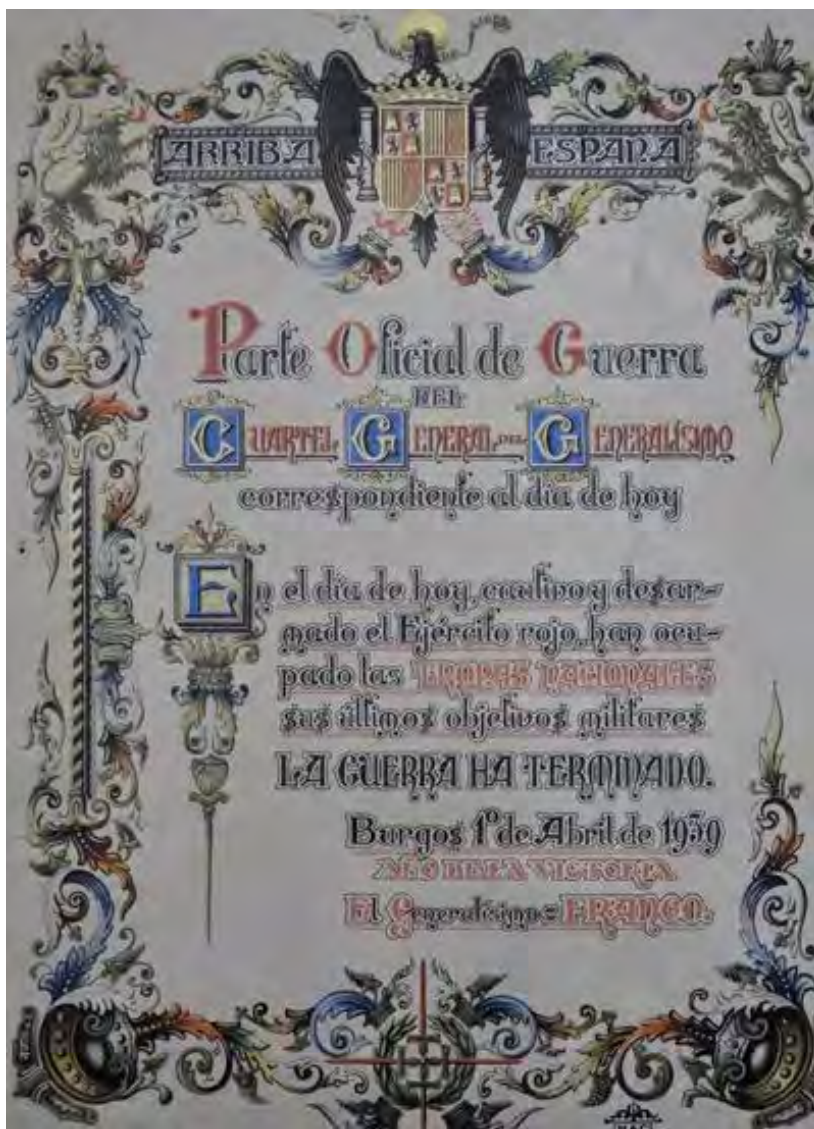 ARRIBA ESPAÑA
Parte Oficial de Guerra
DEL
CUARTEL GENERAL DEL GENERALÍSIMO
correspondiente al día de hoy
En el día de hoy, cautivo y desar-
mado el Ejército rojo, han ocu-
pado las TROPAS NACIONALES
sus últimos objetivos militares
LA GUERRA HA TERMINADO.
Burgos 1º de Abril de 1939
AÑO DE LA VICTORIA
El Generalísimo = FRANCO.